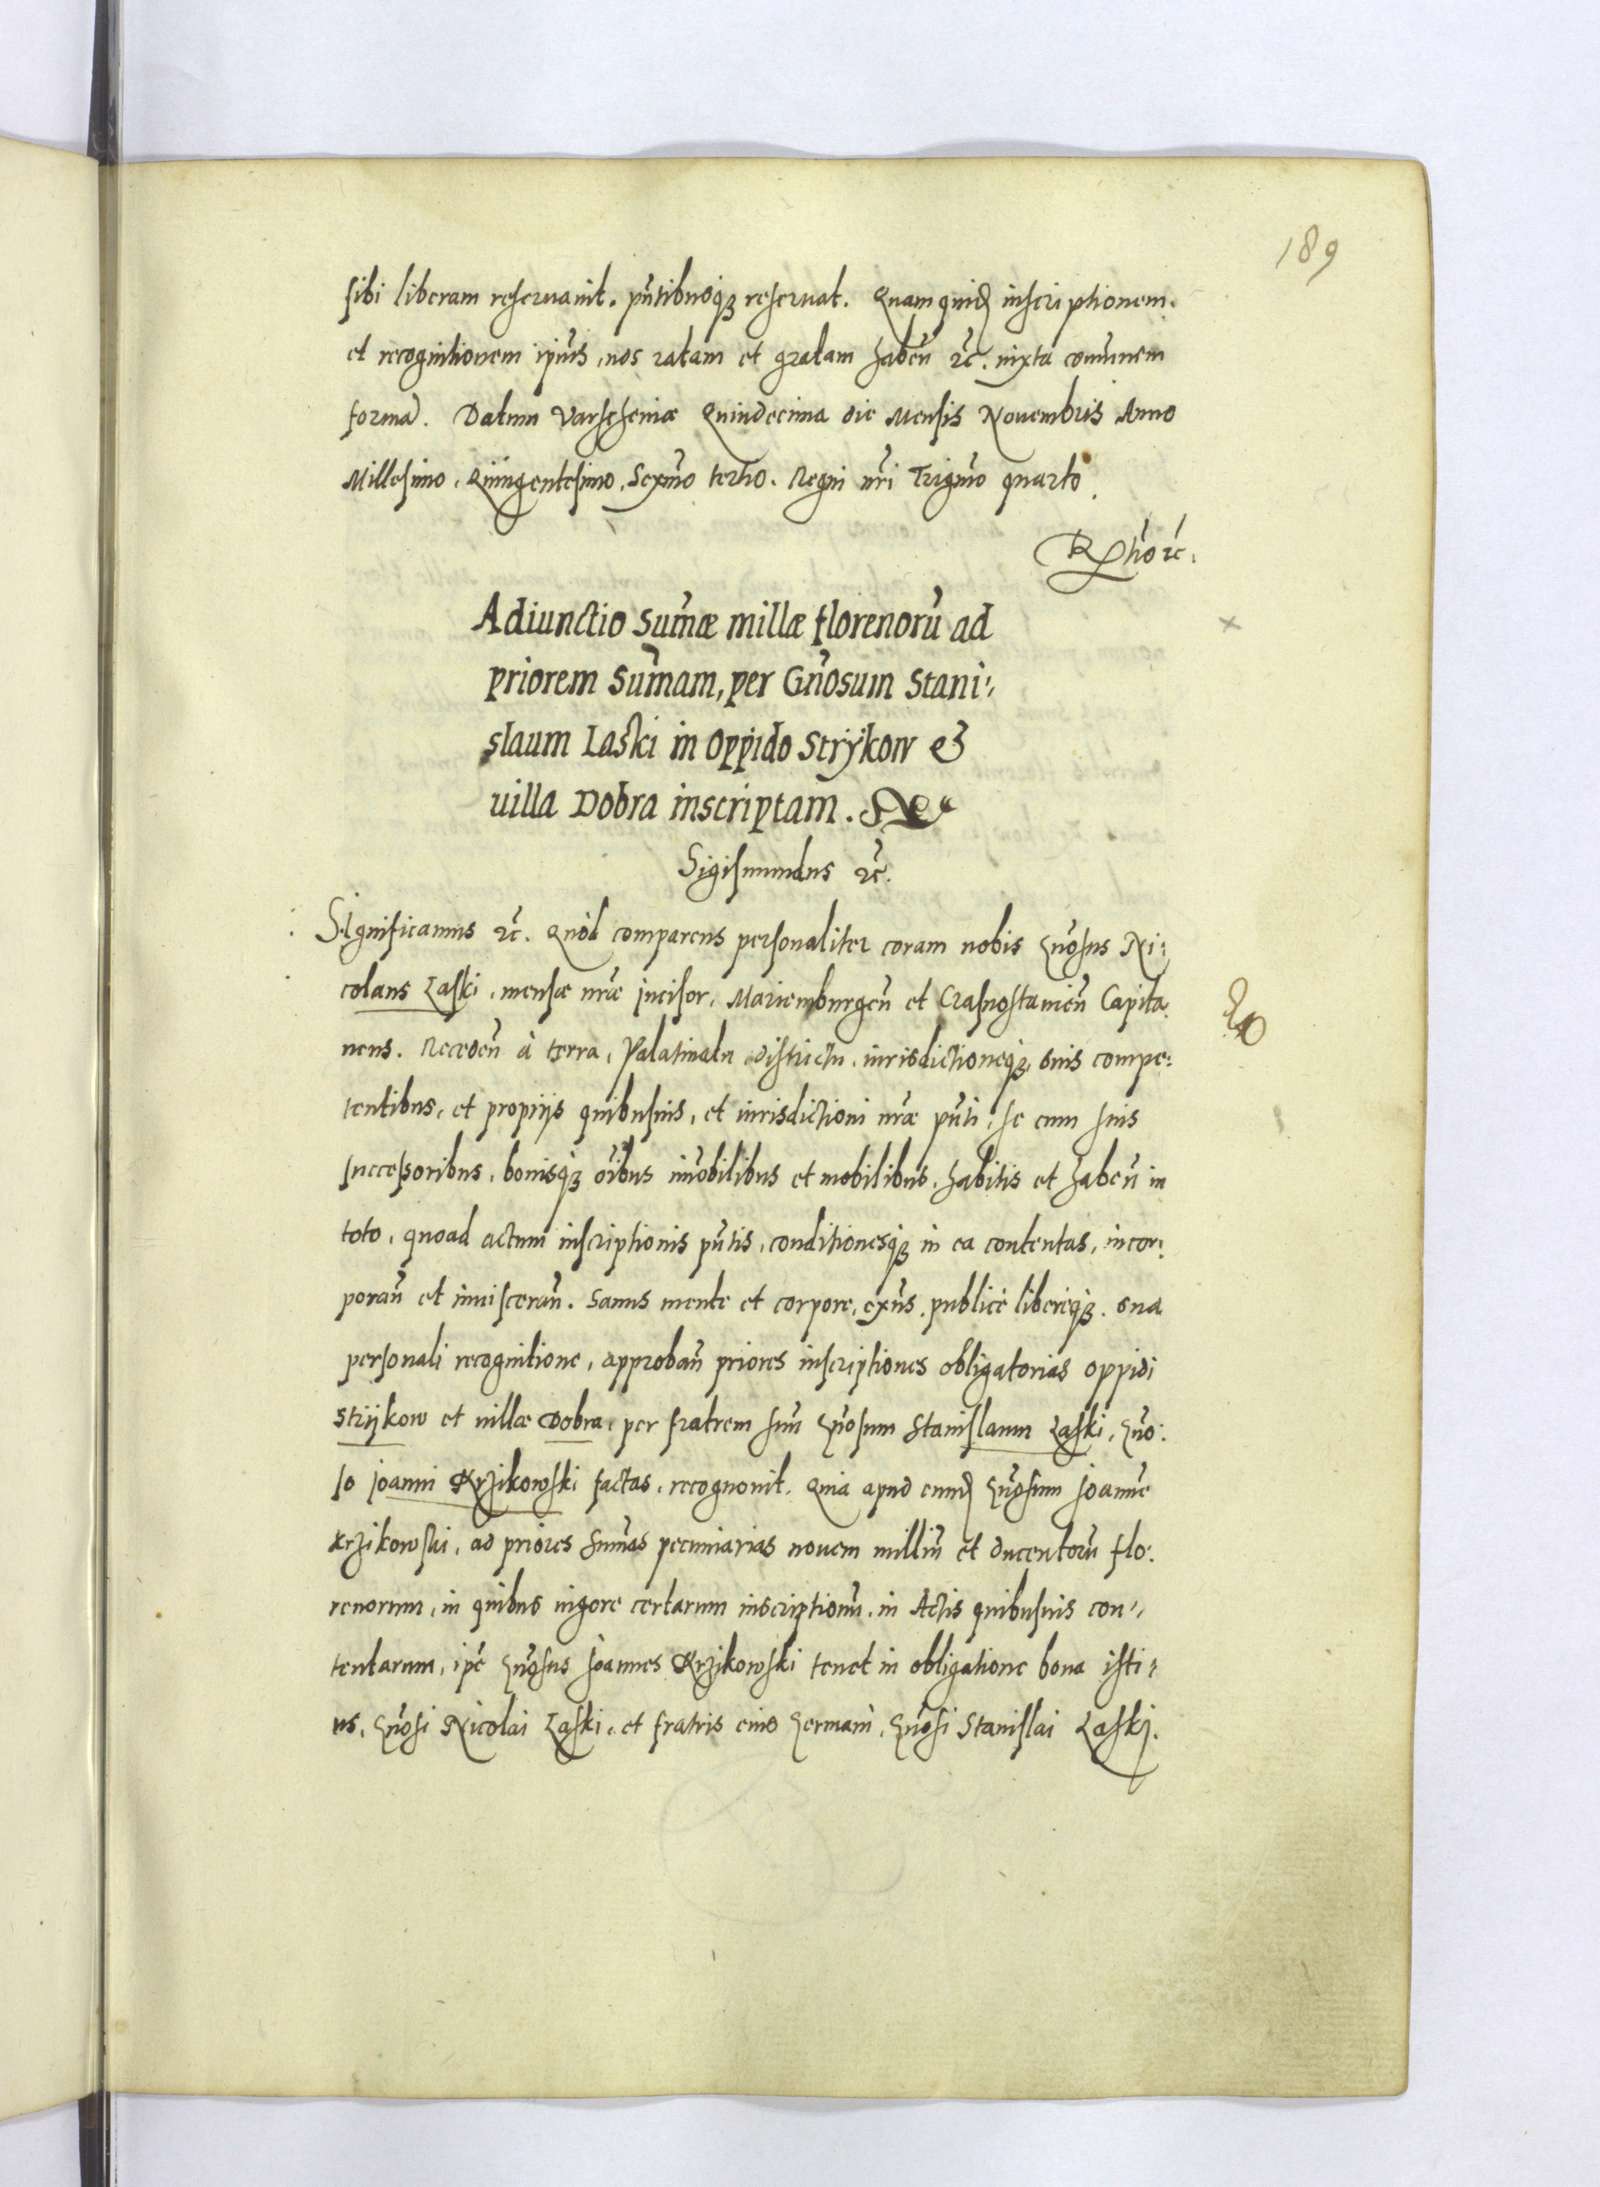 189
sibi liberam reseruauit, pñtibusqꜣ reseruat. Quam quid inscriptionem,
et recognitionem ipiũs, nos ratam et gratam habeñ ꝛc. iuxta comũnem
forma. Datum Varscheuiæ Quindecima die Mensis Nouembris Anno
Millesimo, Quingentesimo, Sexmõ tertio. Regni nr̃i Trigmõ quarto.
Adiunctio Sum̃æ millæ florenorũ ad
priorem Sum̃am, per Gñosum Stani-
slaum Laski in Oppido Strÿkow &
uilla Dobra inscriptam.
Sigismundus ꝛc.
Significamus ꝛc. Quòd comparens personaliter coram nobis Gñosus Ni:
colaus Laski, mensæ nr̃æ incisor, Mariemburgeñ et Crasnostauieñ Capita
neus. Recedeñ à terra, Palatinatu districtu, iurisdictioneqꜣ, suis compe:
tentibus, et proprijs quibusuis, et iurisdictioni nr̃æ pñti, se cum suis
successoribus, bonisqꜣ oĩbus im̃obilibus et mobilibus, habitis et habeñ in
toto, quoad actum inscriptionis pñtis, conditionesqꜣ in ea contentas, incor:
porañ et inuiscerañ. Sanus mente et corpore, exñs, publicè liberèqꜣ. sua
personali recognitione, approbañ priores inscriptiones obligatorias oppidi
Strijkow et uillæ Dobra, per fratrem suũ Gñosum Stanislaum Laski, Gño:
so Joanni Krzikowski factas, recognouit. Quia apud eund Gñosum Joannẽ
Krzikowski, ad priores sum̃as pecuniarias nouem milliũ et ducentorũ flo:
renorum, in quibus uigore certarum inscriptionũ, in Actis quibusuis con-
tentarum, ipẽ Gñosus Joannes Krzikowski tenet in obligatione bona isti-
us, Gñosi Nicolai Laski, et fratris eius Germani, Gñosi Stanislai Laskj.